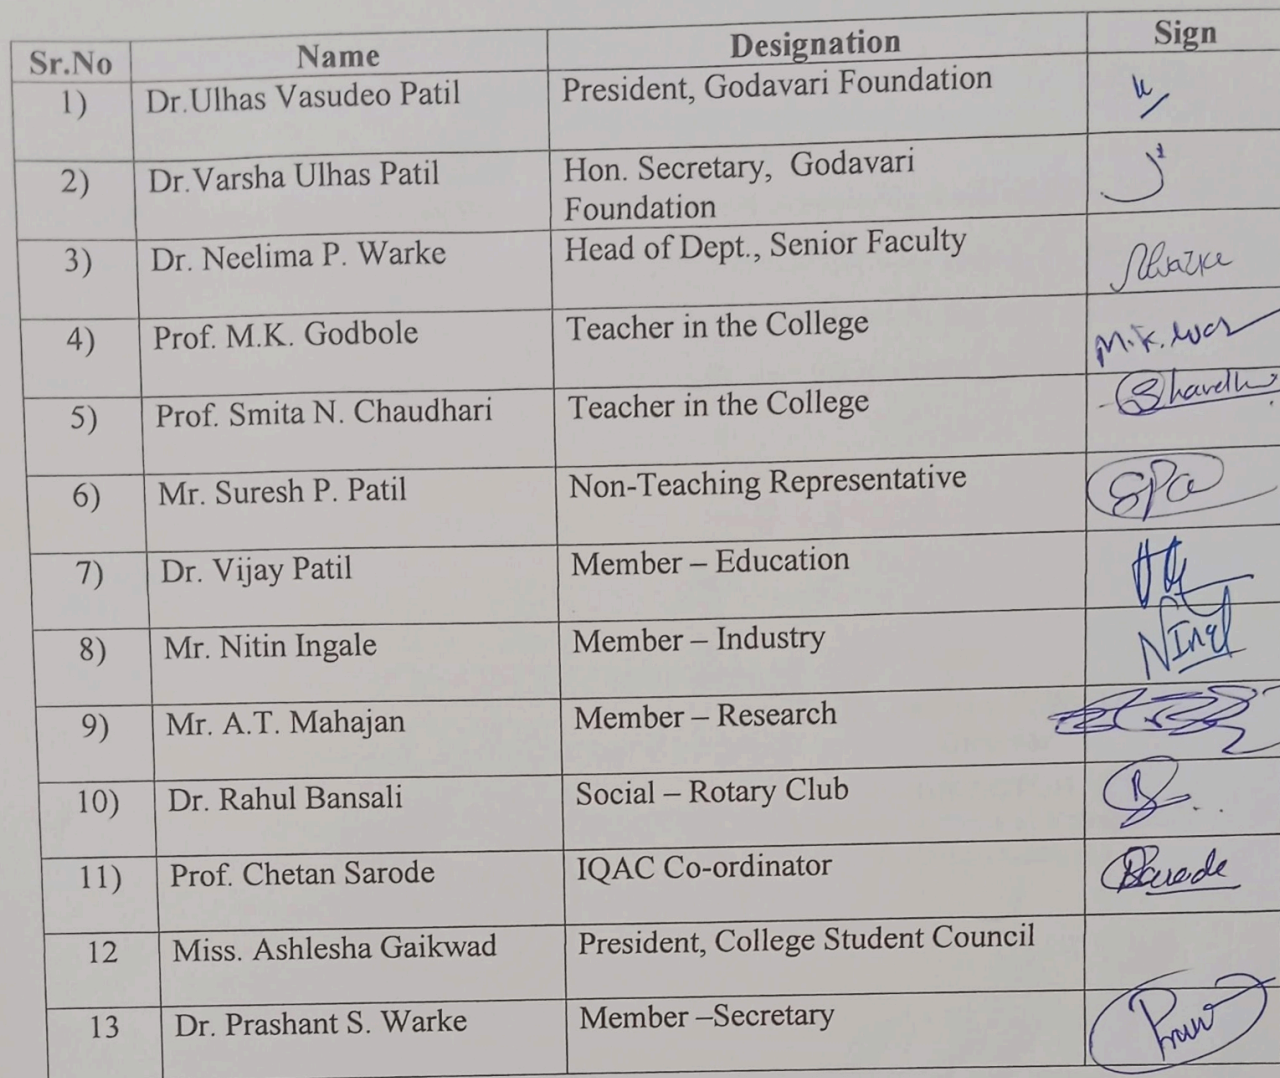 Sr.No Name Designation Sign
1) Dr.Ulhas Vasudeo Patil President, Godavari Foundation
2) Dr.Varsha Ulhas Patil Hon. Secretary, Godavari
Foundation
3) Dr. Neelima P. Warke Head of Dept., Senior Faculty
4) Prof. M.K. Godbole Teacher in the College
5) Prof. Smita N. Chaudhari Teacher in the College
6) Mr. Suresh P. Patil Non-Teaching Representative
7) Dr. Vijay Patil Member – Education
8) Mr. Nitin Ingale Member – Industry
9) Mr. A.T. Mahajan Member – Research
10) Dr. Rahul Bansali Social – Rotary Club
11) Prof. Chetan Sarode IQAC Co-ordinator
12 Miss. Ashlesha Gaikwad President, College Student Council
13 Dr. Prashant S. Warke Member –Secretary